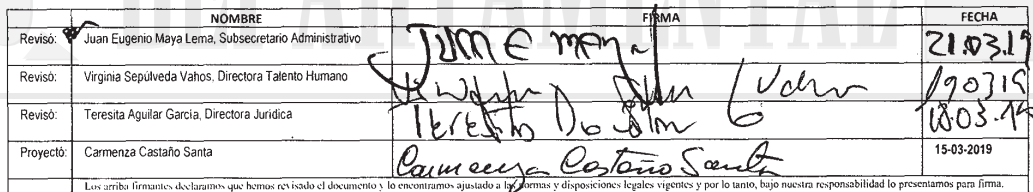 NOMBRE FIRMA FECHA
Revisó: Juan Eugenio Maya Lema, Subsecretario Administrativo 21.03.19
Revisó: Virginia Sepúlveda Vahos, Directora Talento Humano 190319
Revisó: Teresita Aguilar Garcia, Directora Jurídica Teresita 18.03.19
Proyectó: Carmenza Castaño Santa Carmenza Castaño Santa 15-03-2019
Los arriba firmantes declaramos que hemos revisado el documento y lo encontramos ajustado a las normas y disposiciones legales vigentes y por lo tanto, bajo nuestra responsabilidad lo presentamos para firma.